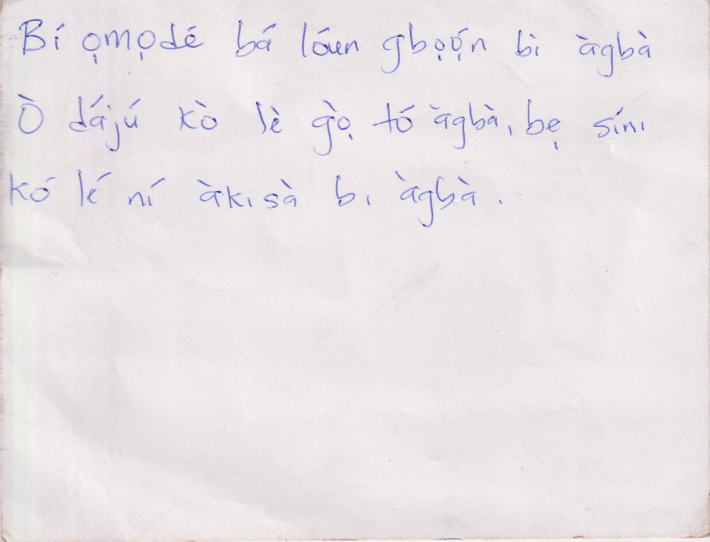 Bí ọmọdé bá lóun gbọọ́n bi àgbà
Ò dájú kò lè gọ̀ tó àgbà, bẹ síni
kó lé ní àkisà bi àgbà.